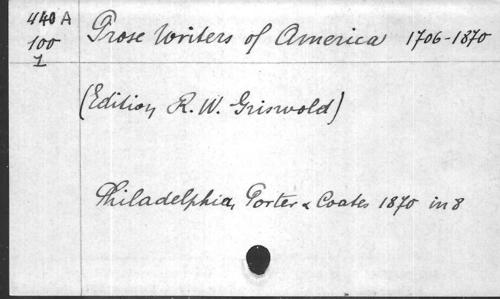 440 A
100
1
Prose Writers of America 1706-1870
(Edition R. W. Griswold)
Philadelphia, Porter & Coates 1870 in 8